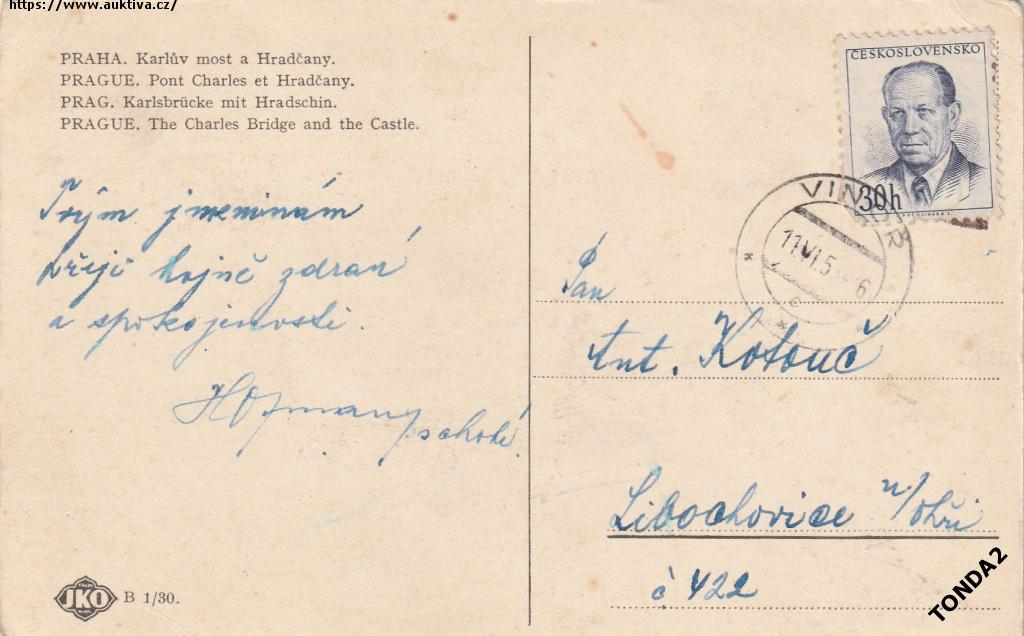 https://www.auktiva.cz/
PRAHA. Karlův most a Hradčany.
PRAGUE. Pont Charles et Hradčany.
PRAG. Karlsbrücke mit Hradschin.
PRAGUE. The Charles Bridge and the Castle.
Tvým jmeninám
přeji hojně zdraví
a spokojenosti.
Hofman
ČESKOSLOVENSKO
30h
VINOŘ
11.VI.5 -6
c
Pan
Ant. Kotouč
Libochovice n/Ohři
č 422
JKO
B 1/30.
TONDA2